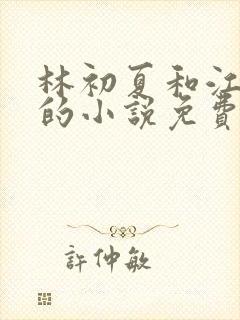 林初夏和江
的小說免費
許仲敏